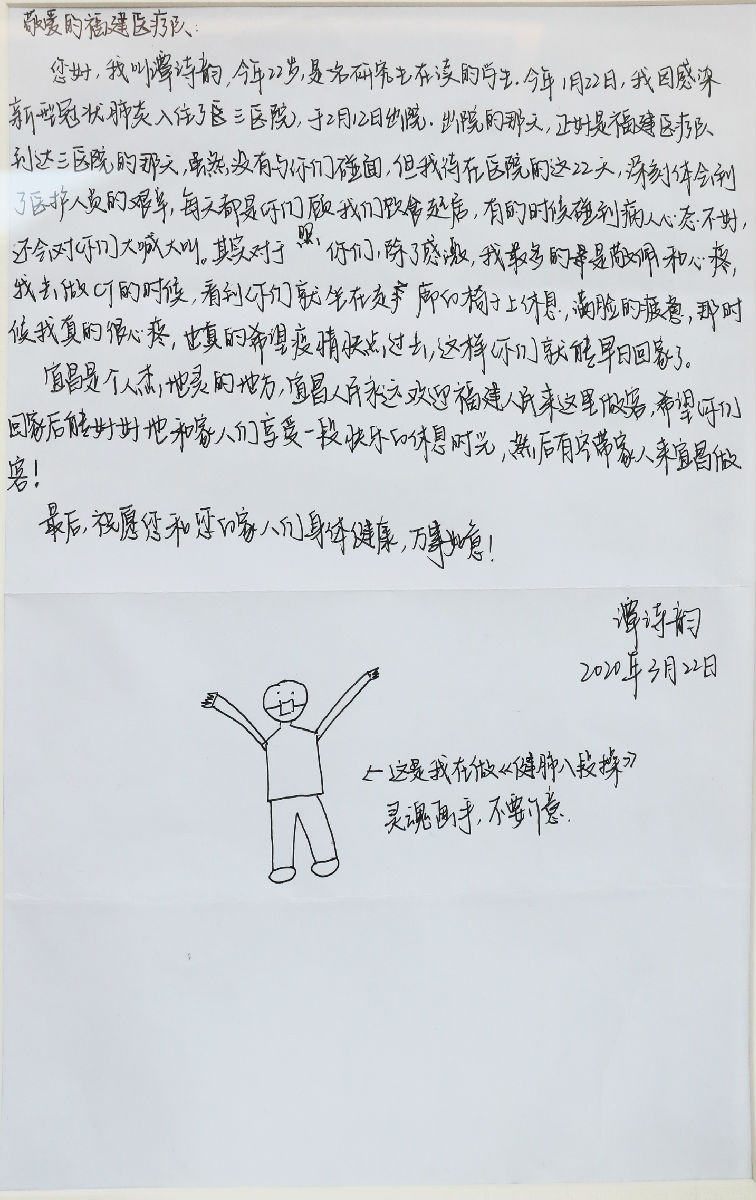 敬爱的福建医疗队:
您好,我叫潭诗韵,今年22岁,是名研究生在读的学生.今年1月22日,我因感染
新型冠状肺炎入住了医三医院,于2月12日出院.出院的那天,正好是福建医疗队
到达三医院的那天,虽然没有与你们碰面,但我待在医院的这22天,深刻体会到
了医护人员的艰辛,每天都是你们照顾我们饮食起居,有的时候碰到病人心态不好,
还会对你们大喊大叫。其实对于你们,除了感激,我最多的是敬佩和心疼,
我去做CT的时候,看到你们就坐在走廊的椅子上休息,满脸的疲惫,那时
候我真的很心疼,也真的希望疫情快点过去,这样你们就能早日回家了。
宜昌是个人杰地灵的地方,宜昌人民永远欢迎福建人民来这里做客,希望你们
回家后能好好地和家人们享受一段快乐的休息时光,然后有空带家人来宜昌做
客!
最后,祝愿您和您的家人们身体健康,万事如意!
潭诗韵
2020年3月22日
←这是我在做《健肺八段操》
灵魂画手,不要介意.